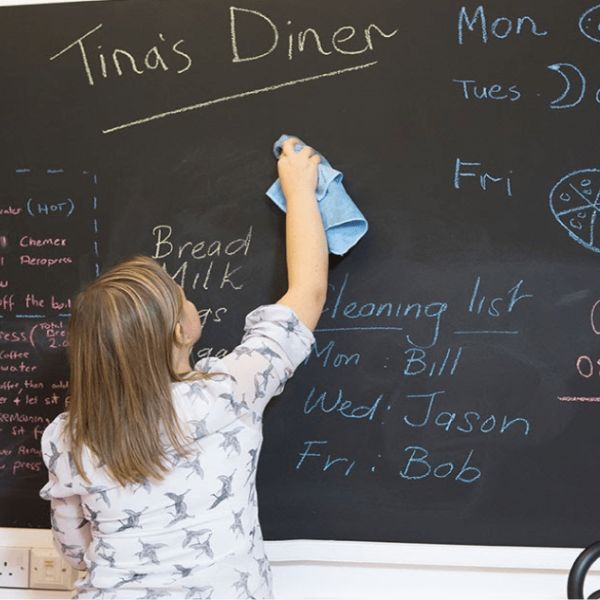 Tina's Diner
Mon
Tues.
Fri
(HOT)
Chemex
Aeropress
off the
Coffee
water
then add
+ let sit
sit
press
Bread
Milk
Cleaning list
Mon: Bill
Wed: Jason
Fri: Bob